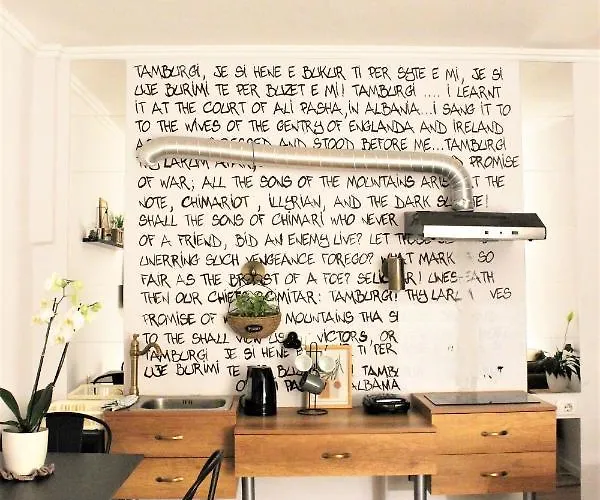 TAMBURGI, JE SI HENE E BUKUR TI PER SYTE E MI, JE SI
UJE BURIMI TE PER BUZET E MI! TAMBURGI .... I LEARNT
IT AT THE COURT OF ALI PASHA, IN ALBANIA...I SANG IT TO
TO THE WIVES OF THE GENTRY OF ENGLANDA AND IRELAND
AND STOOD BEFORE ME...TAMBURGI
THY LARUM PROMISE
OF WAR; ALL THE SONS OF THE MOUNTAINS THE
NOTE, CHIMARIOT, ILLYRIAN, AND THE DARK
SHALL THE SONS OF CHIMARI WHO NEVER
OF A FRIEND, BID AN ENEMY LIVE? LET
UNERRING SUCH VENGEANCE FOREGO? WHAT MARK SO
FAIR AS THE OF A FOE?
THEN OUR SCIMITAR: TAMBURGI! THY
PROMISE OF MOUNTAINS THA SI
TO THE SHALL VICTORS, OR
TAMBURGI JE SI HENE E TI PER
UJE BURIMI TE PER BUZET E MI
ALBAMA